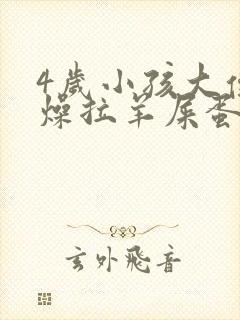 4歲小孩大便
燥拉羊屎蛋
玄外飛音